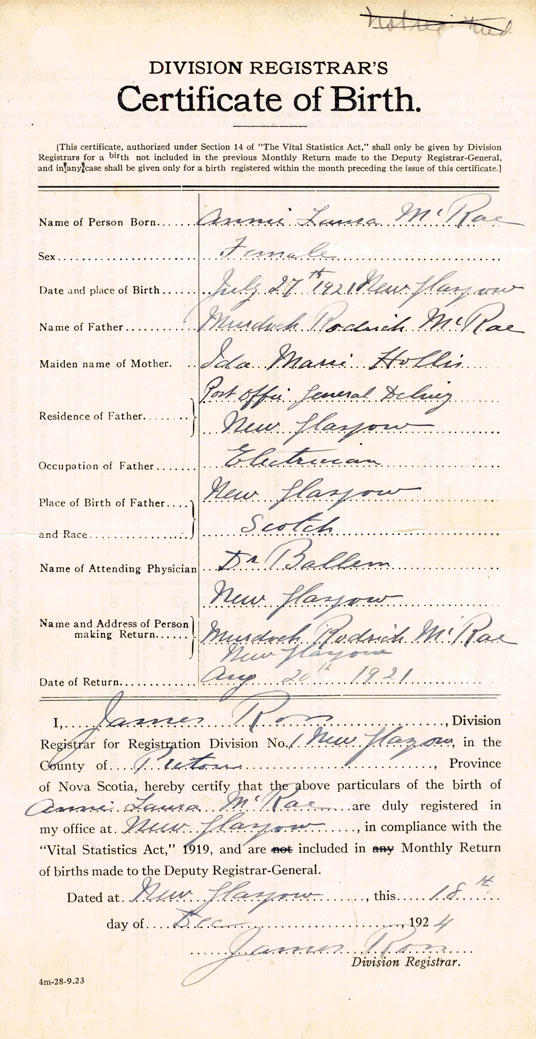 Not registered
DIVISION REGISTRAR'S
Certificate of Birth.
[This certificate, authorized under Section 14 of "The Vital Statistics Act," shall only be given by Division
Registrars for a birth not included in the previous Monthly Return made to the Deputy Registrar-General,
and in any case shall be given only for a birth registered within the month preceding the issue of this certificate.]
Name of Person Born Annie Laura McRae
Sex Female
Date and place of Birth July 27th 1921 New Glasgow
Name of Father Murdoch Rodrich McRae
Maiden name of Mother Ida Marie Hollis
Post Office General
Residence of Father New Glasgow
Occupation of Father Electrician
Place of Birth of Father New Glasgow
and Race Scotch
Name of Attending Physician Dr Ballem
New Glasgow
Name and Address of Person
making Return Murdoch Rodrich McRae
New Glasgow
Date of Return Aug 20th 1921
I, James Ross, Division
Registrar for Registration Division No. 1 New Glasgow, in the
County of Pictou, Province
of Nova Scotia, hereby certify that the above particulars of the birth of
Annie Laura McRae are duly registered in
my office at New Glasgow, in compliance with the
"Vital Statistics Act," 1919, and are not included in any Monthly Return
of births made to the Deputy Registrar-General.
Dated at New Glasgow, this 18th
day of Dec, 1924
James Ross
Division Registrar.
4m-28-9.23